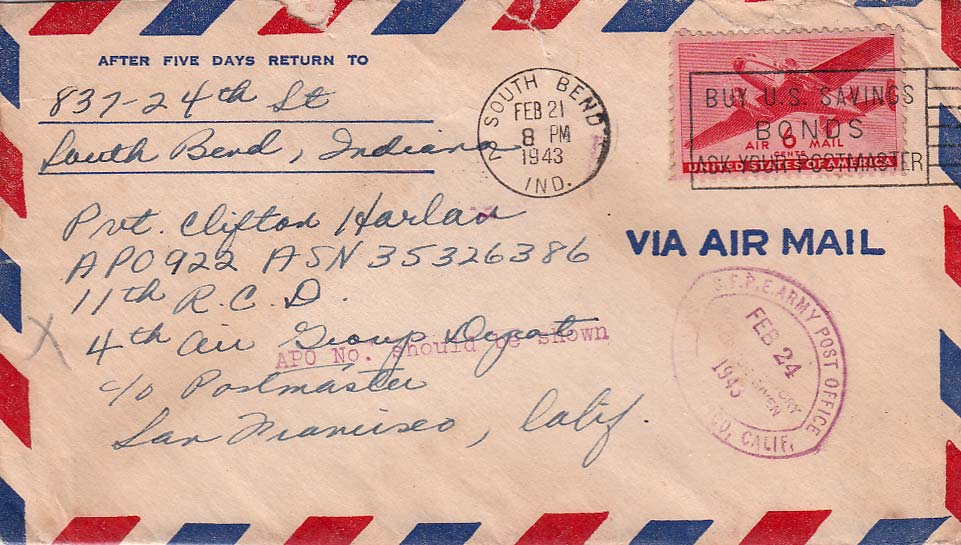 AFTER FIVE DAYS RETURN TO
837-24th St
South Bend, Indiana
2 SOUTH BEND
FEB 21
8 PM
1943
IND.
BUY U.S. SAVINGS
BONDS
ASK YOUR POSTMASTER
6
AIR MAIL
CENTS
UNITED STATES OF AMERICA
Pvt. Clifton Harlan
APO 922 ASN 35326386
11th R.C.D.
X
4th Air Group Depot
APO No. should be shown
c/o Postmaster
San Francisco, Calif.
VIA AIR MAIL
S.F.P.E. ARMY POST OFFICE
FEB 24
1943
CALIF.